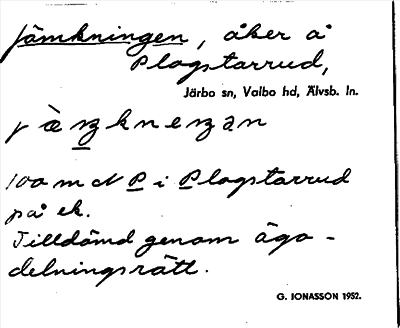 Jämkningen, åker å
Plogstarrud,
Järbo sn, Valbo hd, Älvsb. ln.
100 m N P i Plogstarrud
på ek.
Tilldömd genom ägo-
delningsrätt.
G. JONASSON 1952.